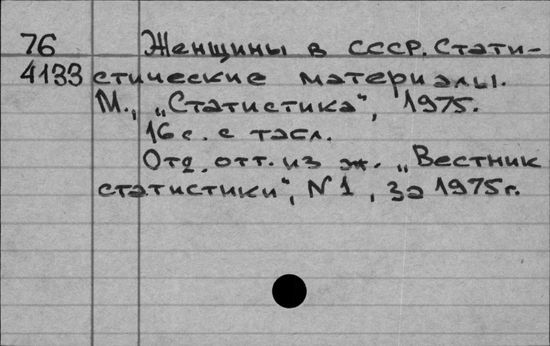 76 Женщины в СССР. Стати-
4133 стические материалы.
М., „Статистика“, 1975.
16 с. с табл.
Отд. отт. из ж. „Вестник
статистики“, N 1, за 1975 г.